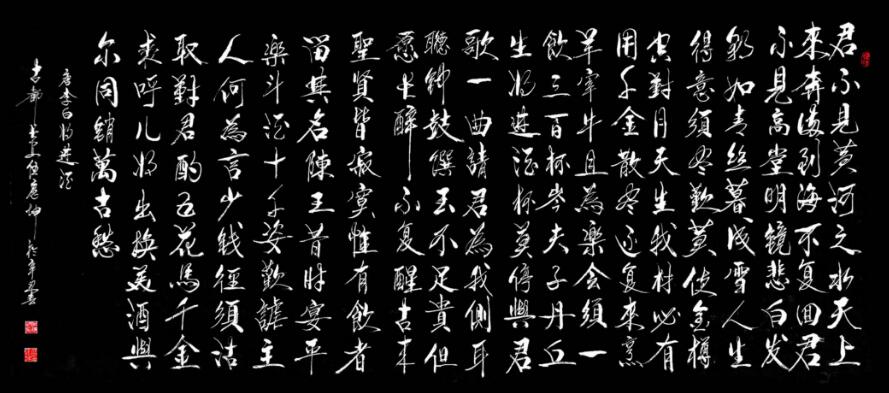 君不見黄河之水天上
來奔流到海不復回君
不見高堂明鏡悲白发
朝如青丝暮成雪人生
得意須尽歡莫使金樽
空對月天生我材必有
用千金散尽还复來烹
羊宰牛且為樂会須一
飲三百杯岑夫子丹丘
生将進酒杯莫停與君
歌一曲請君為我側耳
聽鐘鼓饌玉不足貴但
愿長醉不复醒古来
聖賢皆寂寞惟有飲者
留其名陳王昔時宴平
樂斗酒十千恣歡謔主
人何為言少钱徑須沽
取對君酌五花馬千金
裘呼儿将出换美酒與
尔同銷萬古愁
唐李白将進酒
古都